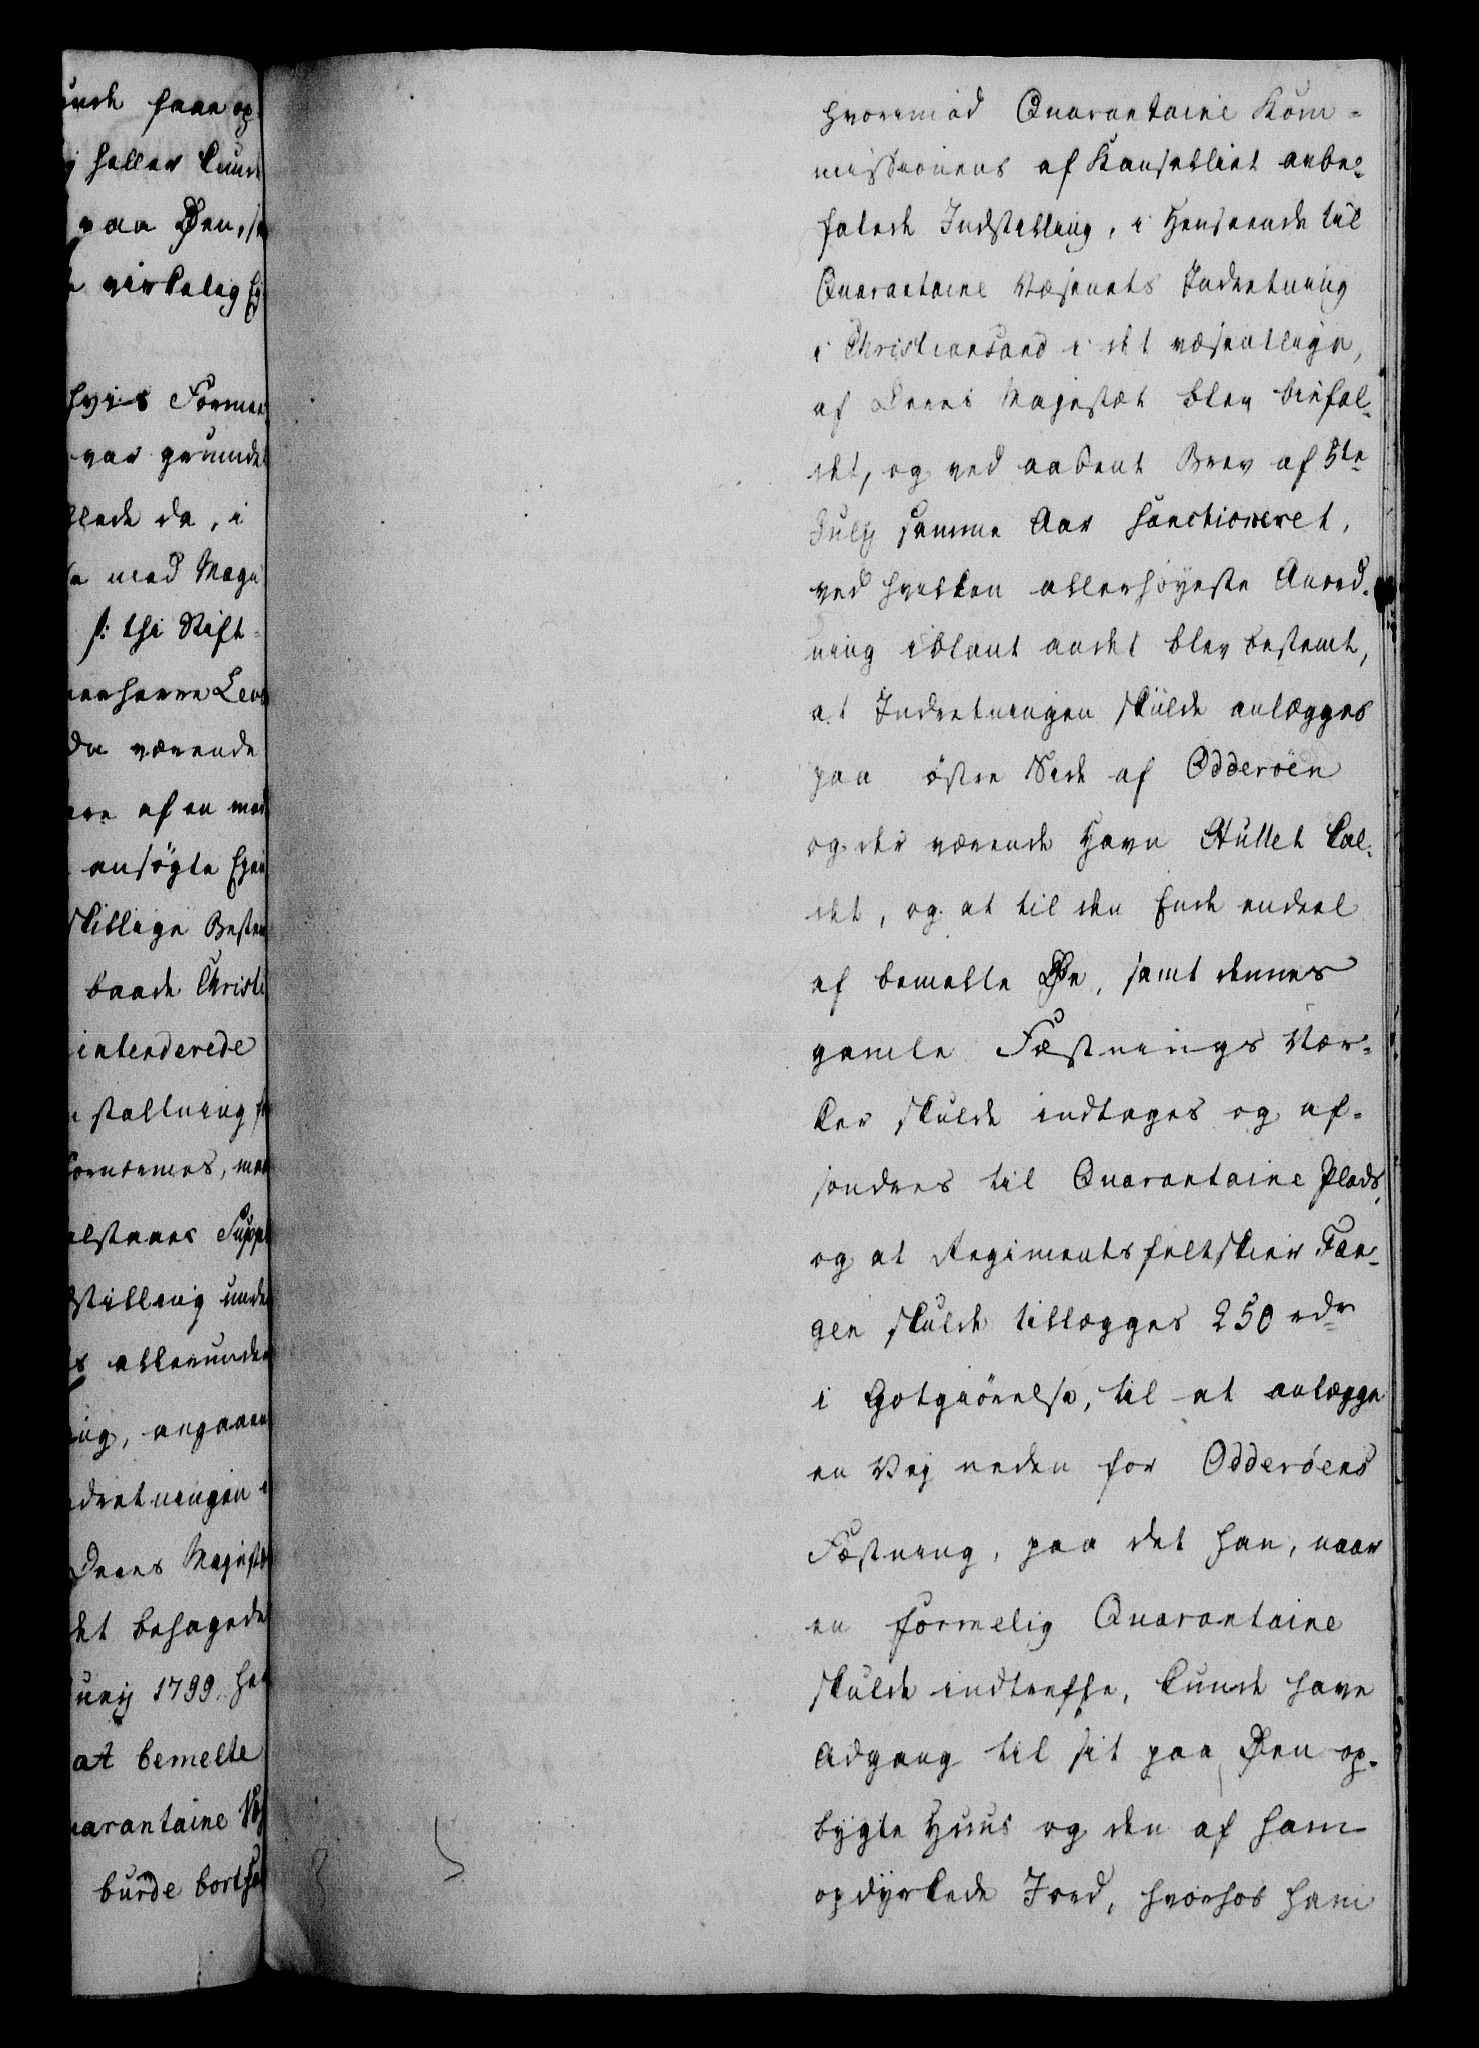 unde faae op-
heller kunde
paa Øen, 
virkelig
hvis Formue
var grundet
lede da, i
med Magi
/: thi Stift-
merherre
da værende
af en med
ansøgte
skillige
baade Christi
intenderede
staltning
fornemmes, men
Suppl
stilling unde
allerunder
ng, angaaen
dretningen i
Deres Majestæ
det behagede
Junij 1799 
at bemelte
uarantaine
burde
hvorimod Quarantaine Kom-
missionens af Kanselliet anbe-
falede Indstilling, i Henseende til
Quarantaine Væsenets Indretning
i Christiansand i det væsentlige,
af Deres Majestæt blev biefal-
det, og ved aabent Brev af 5te
July samme Aar sanctioneret,
ved hvilken allerhöyeste Anord-
ning iblant andet blev bestemt,
at Indretningen skulde anlægges
paa östre Side af Odderöen
og der værende Havn Hullet kal-
det, og at til den Ende endeel
af bemelte Øe, samt dennes
gamle Fæstnings Vær-
ker skulde indtages og af-
söndres til Quarantaine Plads,
og at Regimentsfeltskier Fan-
gen skulde tillægges 250 rdr
i Gotgiörelse, til at anlægge
en Vej neden for Odderöens
Fæstning, paa det han, naar
en formelig Quarantaine
skulde indtreffe, kunde have
Adgang til sit paa Øen op-
bygte Huus og den af ham
opdyrkede Jord, hvorhos ham